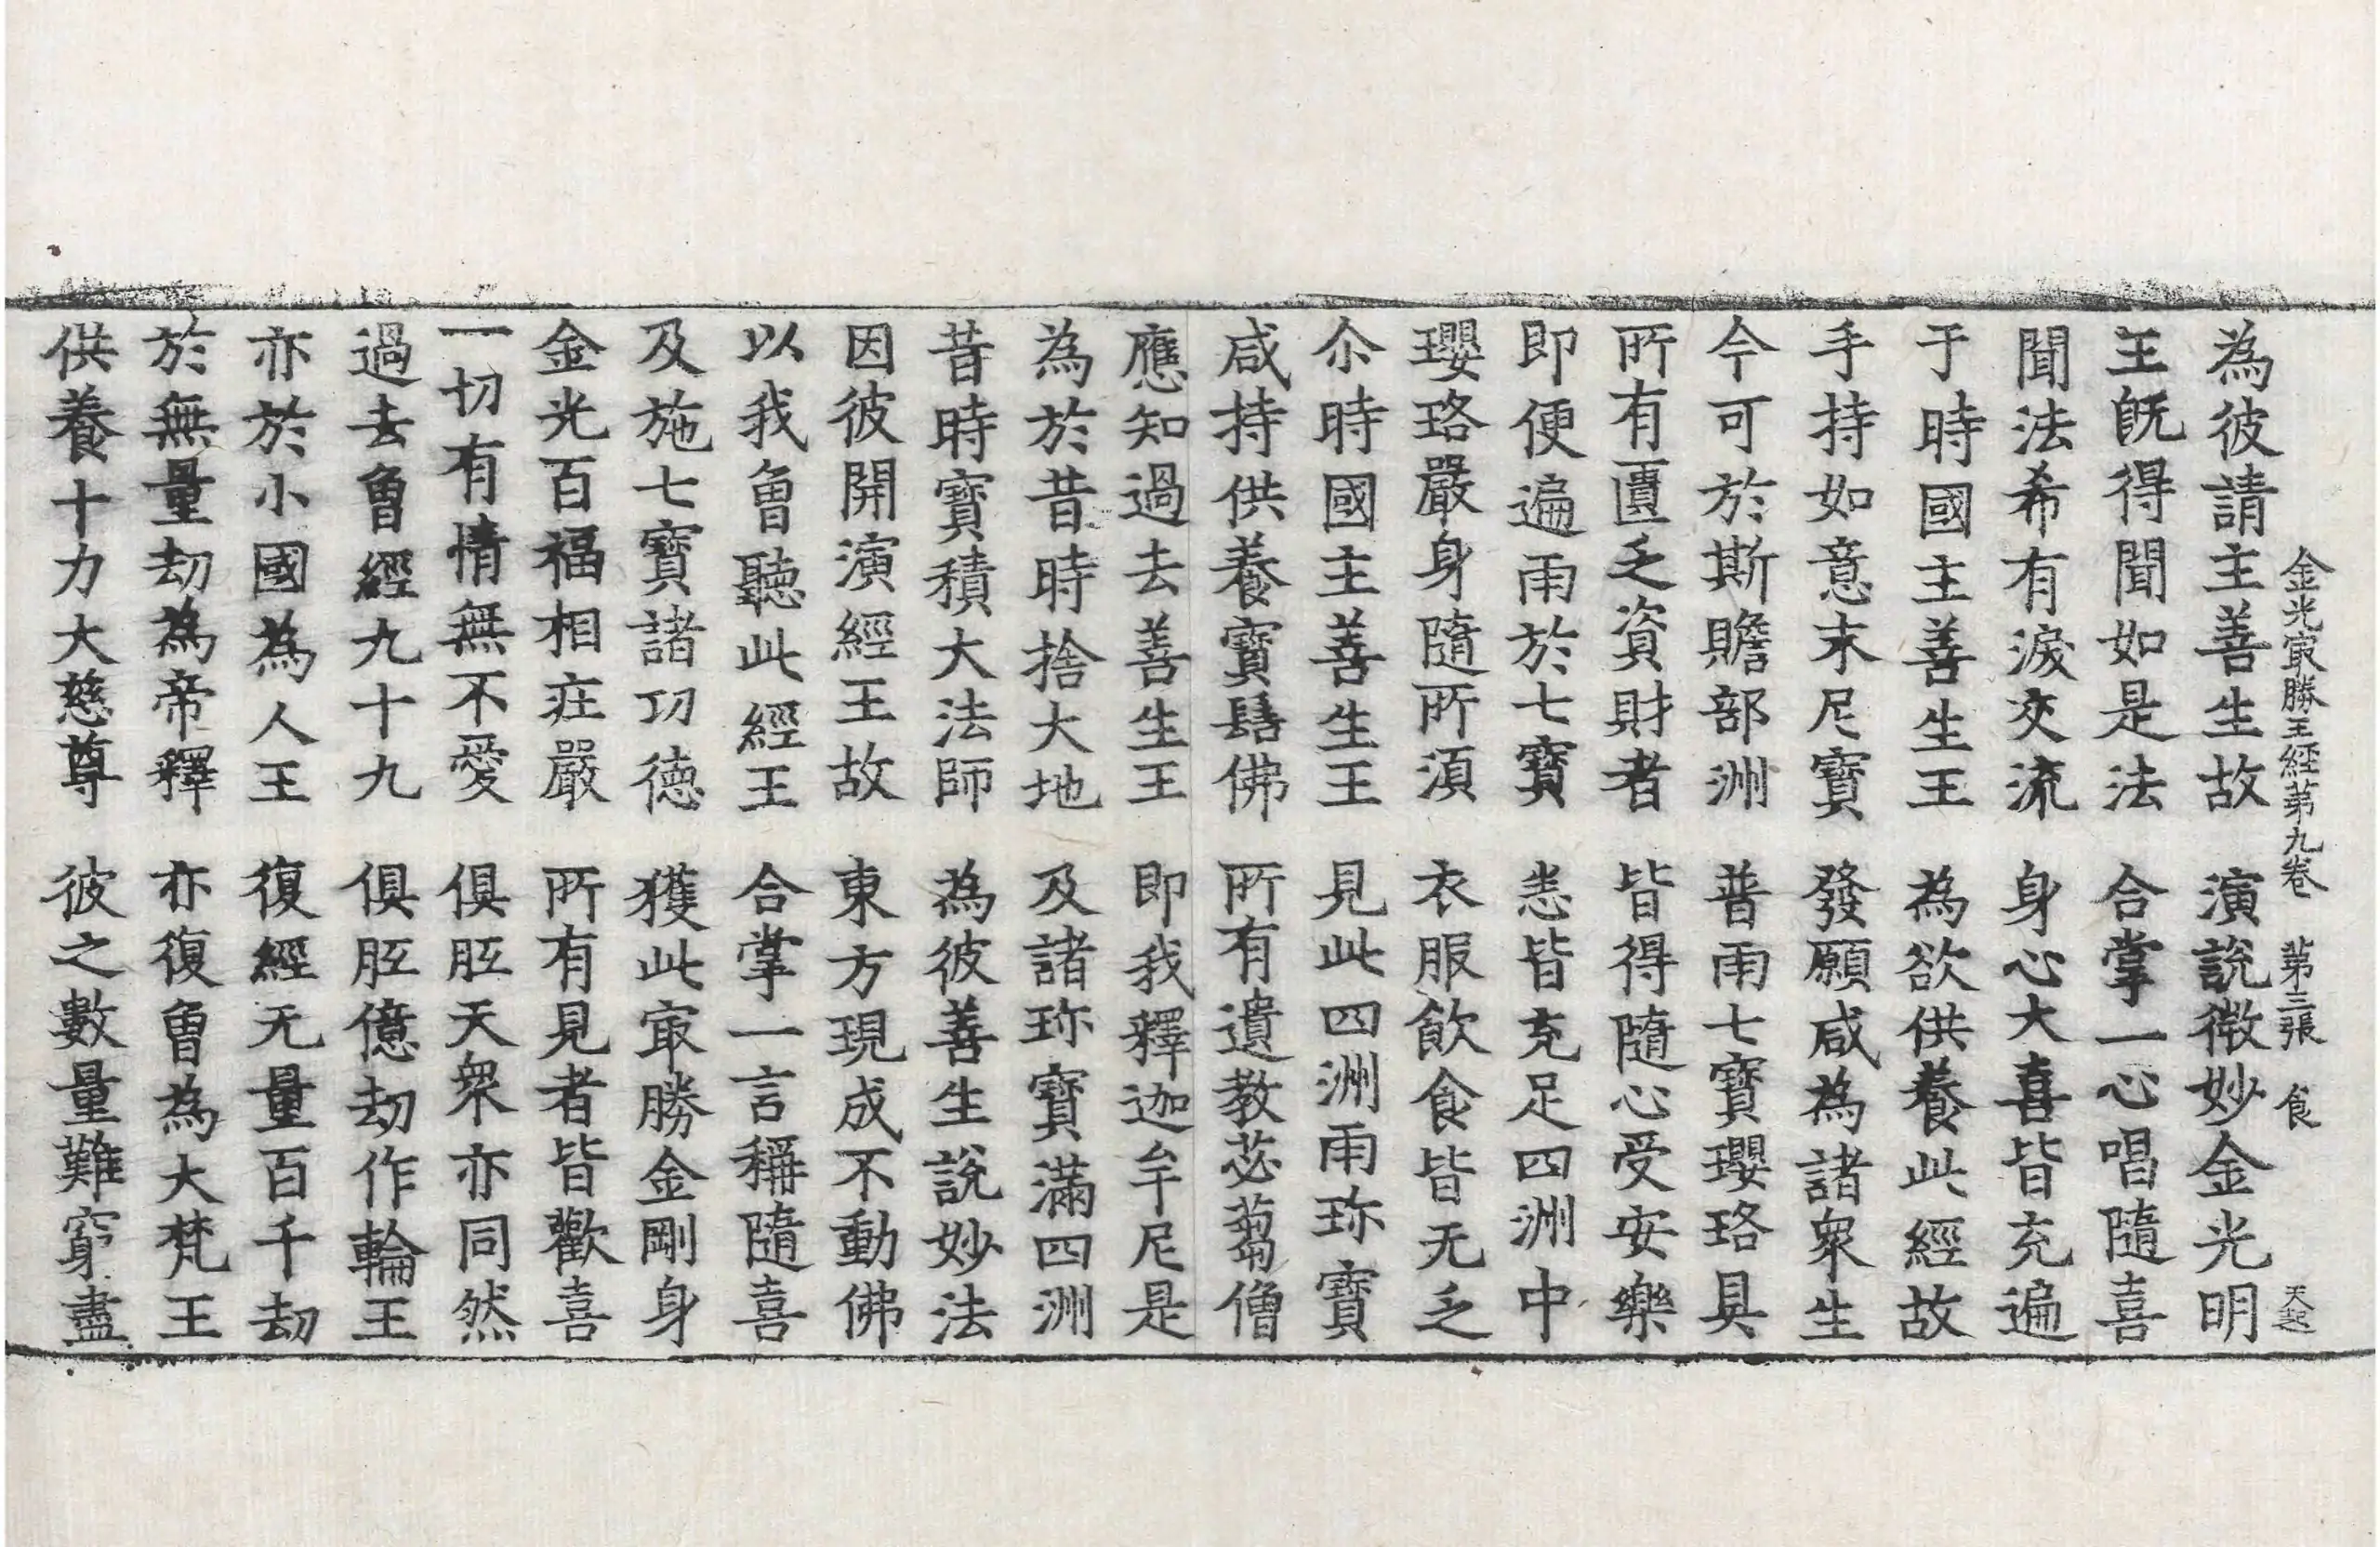 金光㝡勝王經第九卷 第三張 食 天起
為彼請主善生故 演說微妙金光明
王旣得聞如是法 合掌一心唱隨喜
聞法希有淚交流 身心大喜皆充遍
于時國主善生王 為欲供養此經故
手持如意末尼寶 發願咸為諸衆生
今可於斯贍部洲 普雨七寶瓔珞具
所有匱乏資財者 皆得隨心受安樂
即便遍雨於七寶 悉皆充足四洲中
瓔珞嚴身隨所須 衣服飲食皆无乏
尒時國主善生王 見此四洲雨珎寶
咸持供養寶髻佛 所有遺教苾蒭僧
應知過去善生王 即我釋迦牟尼是
為於昔時捨大地 及諸珎寶滿四洲
昔時寶積大法師 為彼善生說妙法
因彼開演經王故 東方現成不動佛
以我曾聽此經王 合掌一言稱隨喜
及施七寶諸功德 獲此㝡勝金剛身
金光百福相莊嚴 所有見者皆歡喜
一切有情無不愛 俱胝天衆亦同然
過去曾經九十九 俱胝億劫作輪王
亦於小國為人王 復經无量百千劫
於無量劫為帝釋 亦復曾為大梵王
供養十力大慈尊 彼之數量難窮盡